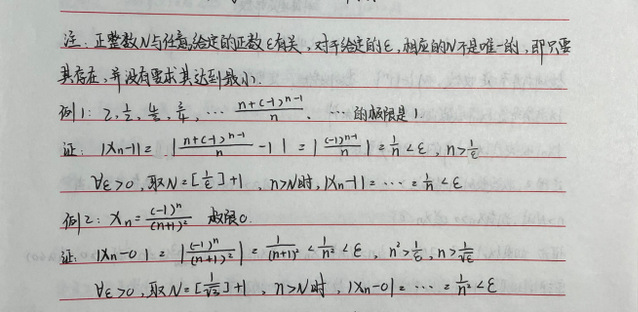 注：正整数N与任意给定的正数ε有关，对于给定的ε，相应的N不是唯一的，即只要
其存在，并没有要求其达到最小.
例1：2, 1/2, 4/3, 3/4, … (n+(-1)^{n-1})/n, … 的极限是1.
证：|Xn-1| = |(n+(-1)^{n-1})/n - 1| = |(-1)^{n-1}/n| = 1/n < ε, n > 1/ε
∀ε>0, 取N=[1/ε]+1, n>N时, |Xn-1| = … = 1/n < ε
例2：Xn = (-1)^n/(n+1)^2 极限0.
证：|Xn-0| = |(-1)^n/(n+1)^2| = 1/(n+1)^2 < 1/n^2 < ε, n^2 > 1/ε, n > 1/√ε
∀ε>0, 取N=[1/√ε]+1, n>N时, |Xn-0| = … = 1/n^2 < ε